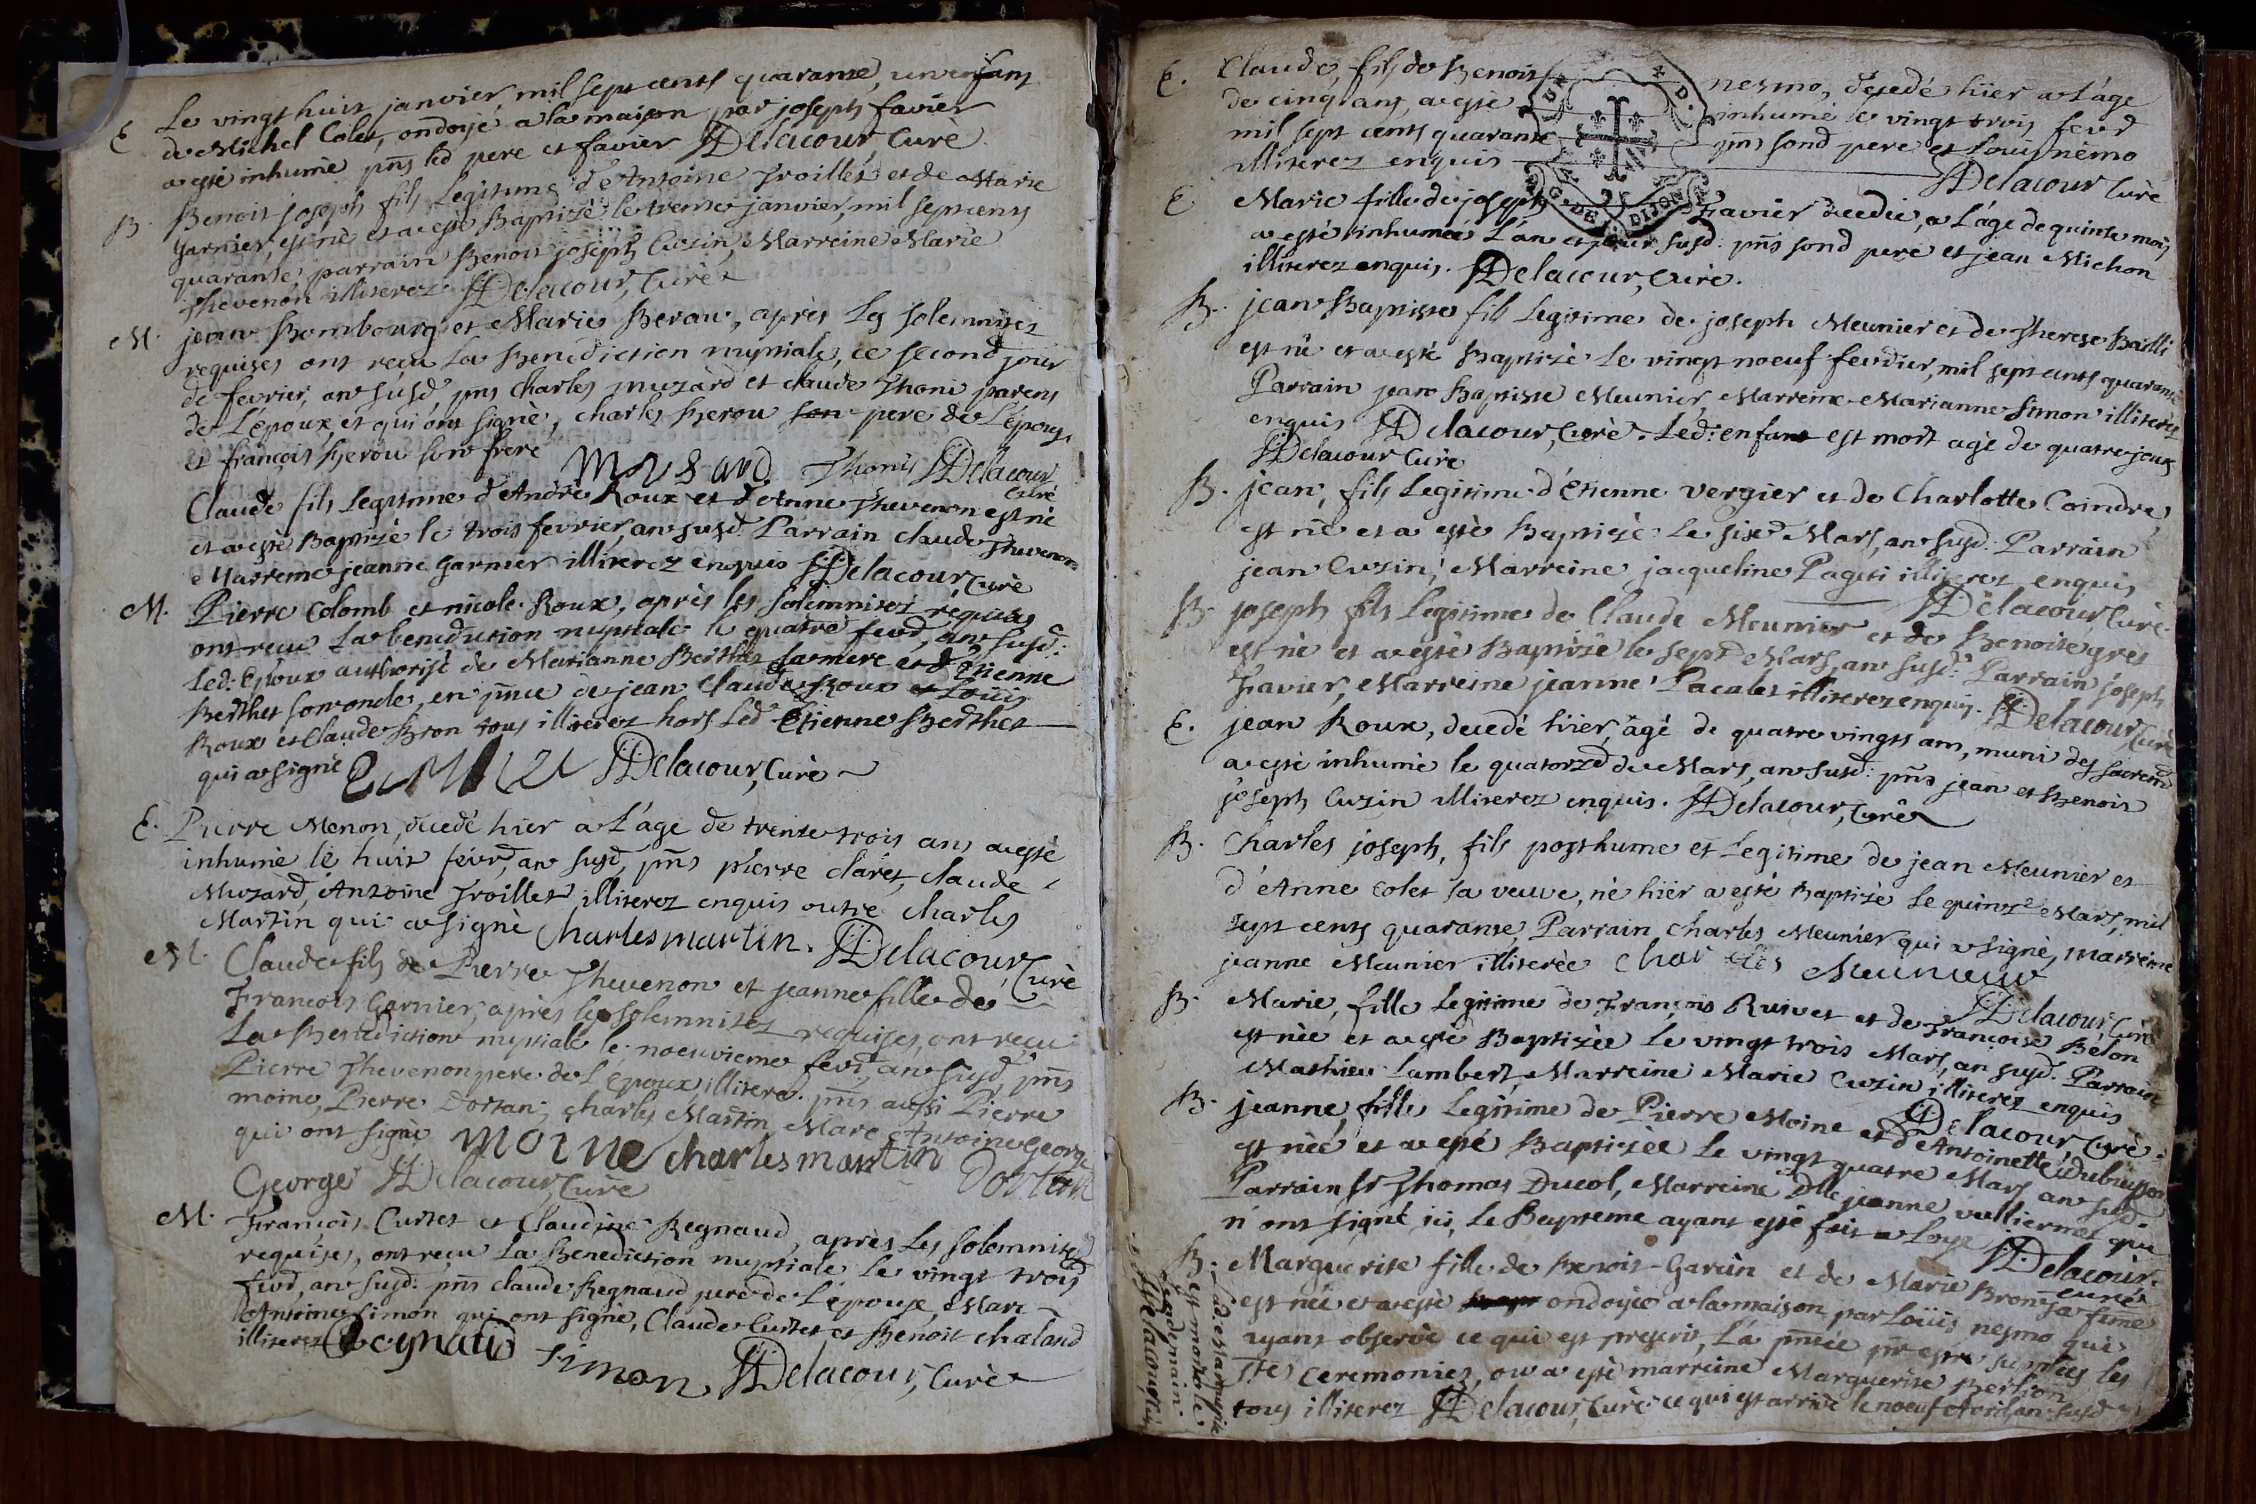 E Le vingt huit janvier, mil sept cents quarante, un enfant
de Michel Colet, ondoyé a la maison par joseph favier
a esté inhumé pñs led pere et favier Delacour, Curé
B. Benoit joseph fils legitime d'Antoine Troillet et de Marie
Garnier, est né et a esté Baptizé le trente janvier, mil sept cents
quarante, parrain Benoit joseph Cuzin, Marreine Marie
Thevenon illiterez Delacour, Curé
M. jean Bombourg et Marie Berou, après les solemnitez
requises ont reçu la Benediction nuptiale, ce second jour
de fevrier, an susd, pñs Charles muzard et claude Thoni parens
de L'époux, et qui ont signé, charles Berou son pere de L'épouse,
et françois Berou son frere
musard. Thonis Delacour
Curé
Claude fils legitime d'André Roux et d'Anne Thevenon est né
et a esté Baptizé le trois fevrier, an susd. Parrain claude Thevenon
Marreine jeanne Garnier illiterez enquis Delacour, Curé
M. Pierre Colomb et nicole Roux, après les solemnitez requises
ont reçu la benediction nuptiale le quatre fevr, an susd:
led: Epoux authorisé de Marianne Berthet sa mere et d'Etienne
Berthet son oncle, en pñce de jean Claude Roux et Loüis
Roux et Claude Bron tous illiterez hors led Etienne Berthet
qui a signé Delacour, Curé
E. Pierre Menon, decedé hier a L'áge de trente trois ans a esté
inhumé le huit févr, an susd, pñs pierre claret, claude
Muzard, Antoine Troillet, illiterez enquis outre Charles
Martin qui a signé Charles martin. Delacour, Curé
M. Claude fils de Pierre Thevenon et jeanne fille de
François Garnier, après les solemnitez requises, ont reçu
La Benediction nuptiale le noeuvieme fevr, an susd, pñs
Pierre Thevenon pere de L'époux, illiteré. pñs aussi Pierre
moine, Pierre Dortan, charles Martin, Marc Antoine George
qui ont signé moine Charles martin Dortan
George Delacour, Curé
M. François Curtet et Claudine Regnaud, après les solemnitez
requises, ont reçu la Benediction nuptiale le vingt trois
fevr, an susd: pñs claude Regnaud pere de L'épouse, Marc
Antoine Simon qui ont signé, Claude Curtet et Benoit chaland
illiterez Regnaud Simon Delacour, Curé
E. Claude, fils de Benoit nesmo, decedé hier a L'áge
de cinq ans, a esté inhumé le vingt trois fevr
mil sept cents quarante pñs sond pere et Louis nemo
illiterez enquis Delacour Curé
E Marie fille de joseph Favier decedée, a L'áge de quinze mois
a esté inhumée L'an et jour susd: pñs sond pere et jean Michon
illiterez enquis. Delacour, Curé.
B. jean Baptiste fils Legitime de joseph Meunier et de Therese Bailli
est né et a esté Baptizé le vingt noeuf fevrier, mil sept cents quarante
Parrain jean Baptiste Meunier, Marreine Marianne Simon illiterez
enquis Delacour, Curé. Led: enfant est mort agé de quatre jours
Delacour Curé
B. jean, fils Legitime d'Etienne Vergier et de Charlotte Coindre,
est né et a esté Baptizé le six Mars, an susd: Parrain
jean Cuzin, Marreine jacqueline Pageti illiterez enquis
Delacour Curé
B. joseph fils Legitime de Claude Meunier et de Benoite grès
est né et a esté Baptizé le sept Mars, an susd: Parrain joseph
Favier, Marreine jeanne Pacalet illiterez enquis. Delacour Curé
E. jean Roux, decedé hier, âgé de quatre vingts ans, muni des sacrem
a esté inhumé le quatorze de Mars, an susd: pñs jean et Benoit
joseph Cuzin illiterez enquis. Delacour, Curé
B. Charles joseph, fils posthume et Legitime de jean Meunier et
d'Anne Colet sa veuve, né hier a esté Baptizé le quinze Mars, mil
sept cents quarante, Parrain Charles Meunier qui a signé, marreine
jeanne Meunier illiterée Charles Meunier
Delacour, Curé
B. Marie, fille Legitime de François Ruivet et de Françoise Belon
est née et a esté Baptizée le vingt trois Mars, an susd. Parrain
Mathieu Lambert, Marreine Marie Cuzin illiterez enquis
Delacour Curé
B. jeanne, fille Legitime de Pierre Moine et d'Antoinette Dubuisson
est née et a esté Baptizée le vingt quatre Mars an susd.
Parrain Sr Thomas Ducol, Marreine Dlle jeanne vulliermet qui
n'ont signé ici, le Bapteme ayant esté fait a Loye Delacour
curé
B. Marguerite fille de Benoit Garcin et de Marie Bron sa féme
est née et a esté ondoyée a la maison par Loüis nesmo qui
ayant observé ce qui est prescrit, L'a pñtée pr estre suplées les
Stes ceremonies, ou a esté marreine Marguerite Berlion
tous illiterez Delacour, Curé ce qui est arrivé le noeuf Avril an susd
Lad. Marguerite
est morte le
Lendemain
Delacour Curé
GÉN. DE DIJON